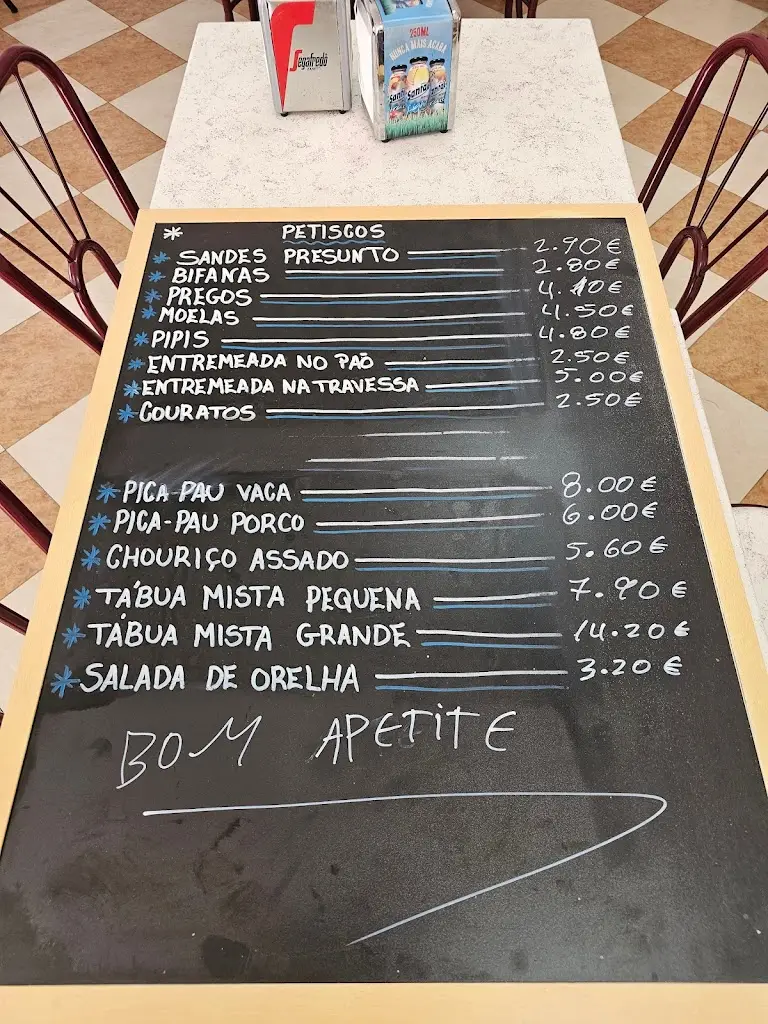 Segafredo
250ML
NUNCA MAIS ACABA
* PETISCOS
* SANDES PRESUNTO 2.90€
* BIFANAS 2.80€
* PREGOS 4.10€
* MOELAS 4.50€
* PIPIS 4.80€
* ENTREMEADA NO PAÕ 2.50€
* ENTREMEADA NA TRAVESSA 5.00€
* COURATOS 2.50€
* PICA PAU VACA 8.00€
* PICA-PAU PORCO 6.00€
* CHOURIÇO ASSADO 5.60€
* TÁBUA MISTA PEQUENA 7.90€
* TÁBUA MISTA GRANDE 14.20€
* SALADA DE ORELHA 3.20€
BOM APETITE